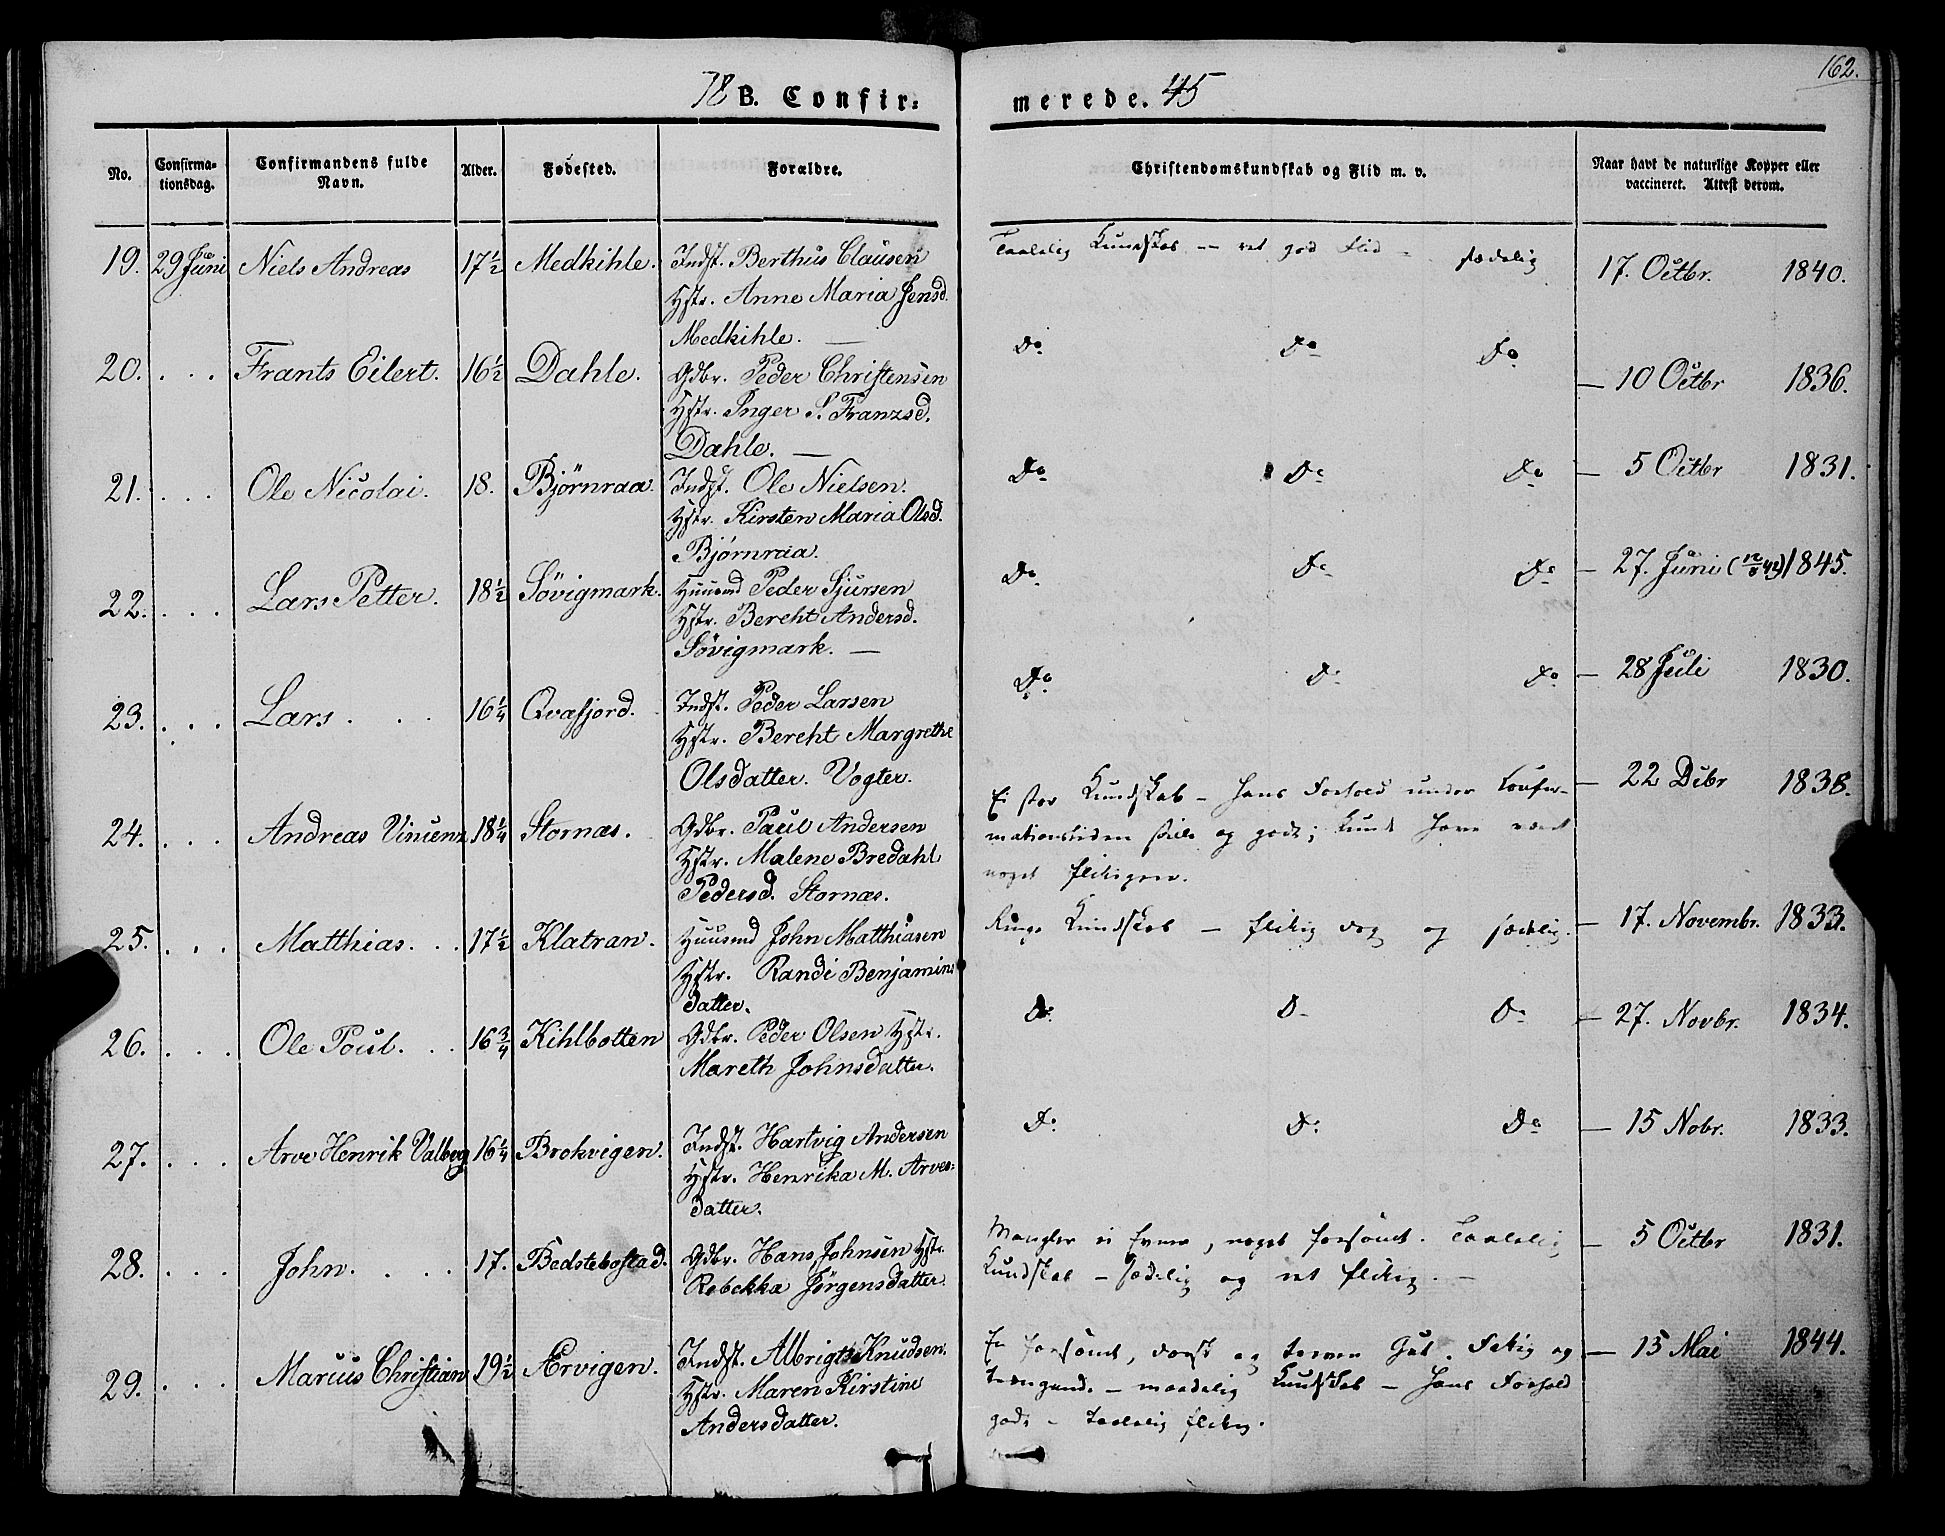 162.
18 B. Confir: merede. 45
No. Confirma- tionsdag. Confirmandens fulde Navn. Alder. Fødested. Forældre. Christendomskundskab og Flid m. v. Naar havt de naturlige Kopper eller vaccineret. Attest derom.
19. 29 Juni Niels Andreas 17 1/2 Medkihle. Indst. Berthus Clausen Taalelig Kundskab — ret god Flid — sædelig 17. Octbr. 1840.
Hstr. Anne Maria Jensd.
Medkihle. —
20. . . . Frants Eilert. 16 1/2 Dahle. Gdbr. Peder Christensen Do Do Do — 10 Octbr 1836.
Hstr. Inger S. Franzsd.
Dahle. —
21. . . . Ole Nicolai. 18. Bjørnraa. Indst. Ole Nielsen. Do Do Do — 5 Octbr 1831.
Hstr. Kirsten Maria Olsd.
Bjørnraa.
22. . . . Lars Petter. 18 1/2 Søvigmark. Huusmd Peder Sjursen Do Do Do — 27. Juni 1845.
Hstr. Bereht Andersd.
Søvigmark. —
23. . . . Lars . . . 16 1/4 Qvæfjord. Indst. Peder Larsen Do Do Do — 28 Juli 1830.
Hstr. Bereht Margrethe
Olsdatter. Vogter.
24. . . . Andreas Vincenz 18 1/4 Stornæs. Gdbr. Paul Andersen Ei stor Kundskab — hans Forhold under Confir- — 22 Dcbr 1838.
Hstr. Malene Bredahl mationstiden stille og godt; kunde have været
Pedersd. Stornæs. noget flittigere.
25. . . . Matthias. . . 17 1/2 Klatran. Huusmd John Matthiasen Ringe Kundskab — flittig dog og sædelig. — 17. Novembr. 1833.
Hstr. Randi Benjamins
datter.
26. . . . Ole Poul. . . 16 3/4 Kihlbotten Gdbr. Peder Olsen Hstr. Do D- Do — 27. Novbr. 1834.
Mareth Johnsdatter.
27. . . . Arve Henrik Valberg 16 1/4 Brokvigen. Indst. Hartvig Andersen Do Do Do — 15 Nobr. 1833.
Hstr. Henrika M. Arves-
datter.
28. . . . John. . . . 17. Bedstebostad. Gdbr. Hans Johnsen Hstr. Mangler ei Evner, noget forsømt. Taalelig — 5 Octbr 1831.
Rebekka Jørgensdatter. Kundskab — sædelig og ret flittig. —
29. . . . Marcus Christian 19 1/2 Ærvigen. Indst. Albrigt Knudsen. En forsømt, og Gut. Fattig og — 15 Mai 1844.
Hstr. Maren Kirstine trængende — maadelig Kundskab — hans Forhold
Andersdatter. godt — taalelig flittig.